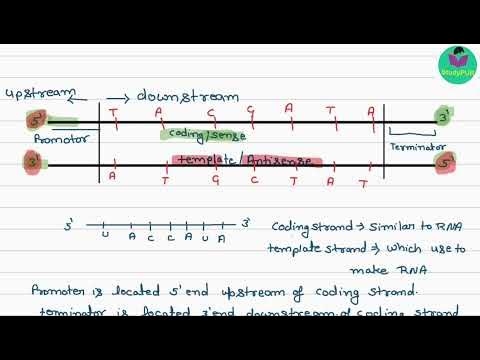 StudyPUR
upstream ← → downstream
T A C G A T A
5' 3'
Promotor coding/sense Terminator
3' template/Antisense 5'
A T G C T A T
5' 3'
U A C C A U A
Coding strand → Similar to RNA
template strand → which use to
make RNA
Promoter is located 5' end upstream of coding strand.
terminator is located 3' end downstream of coding strand